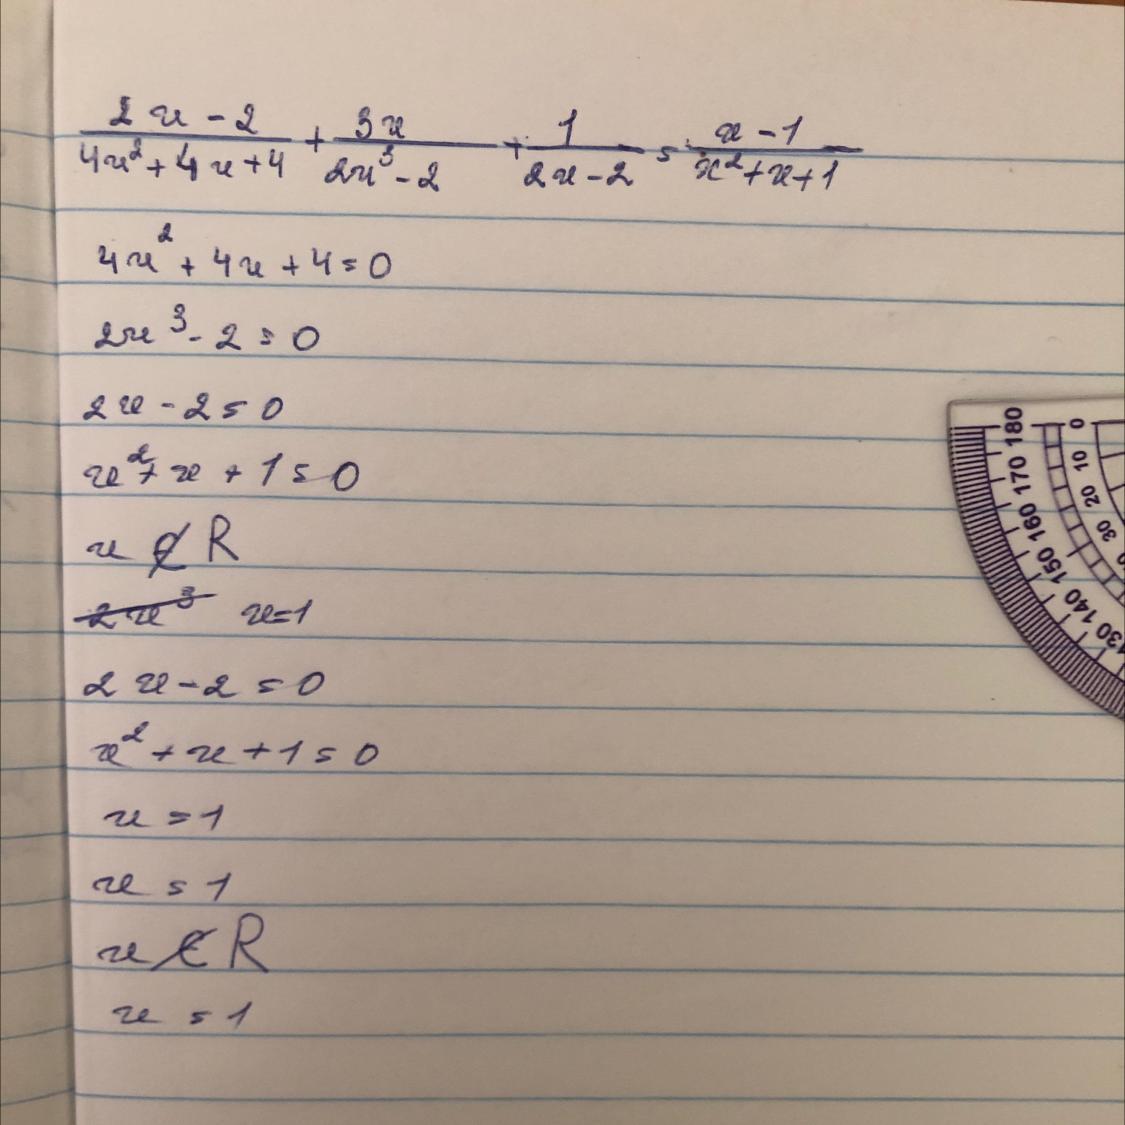 (2x - 2)/(4x² + 4x + 4) + 3x/(2x³ - 2) + 1/(2x - 2) = (x - 1)/(x² + x + 1)
4x² + 4x + 4 = 0
2x³ - 2 = 0
2x - 2 = 0
x² + x + 1 = 0
x ∉ R
2x³ x=1
2x - 2 = 0
x² + x + 1 = 0
x = 1
x = 1
x ∉ R
x = 1
180 170 160 150 140 130
0 10 20 30